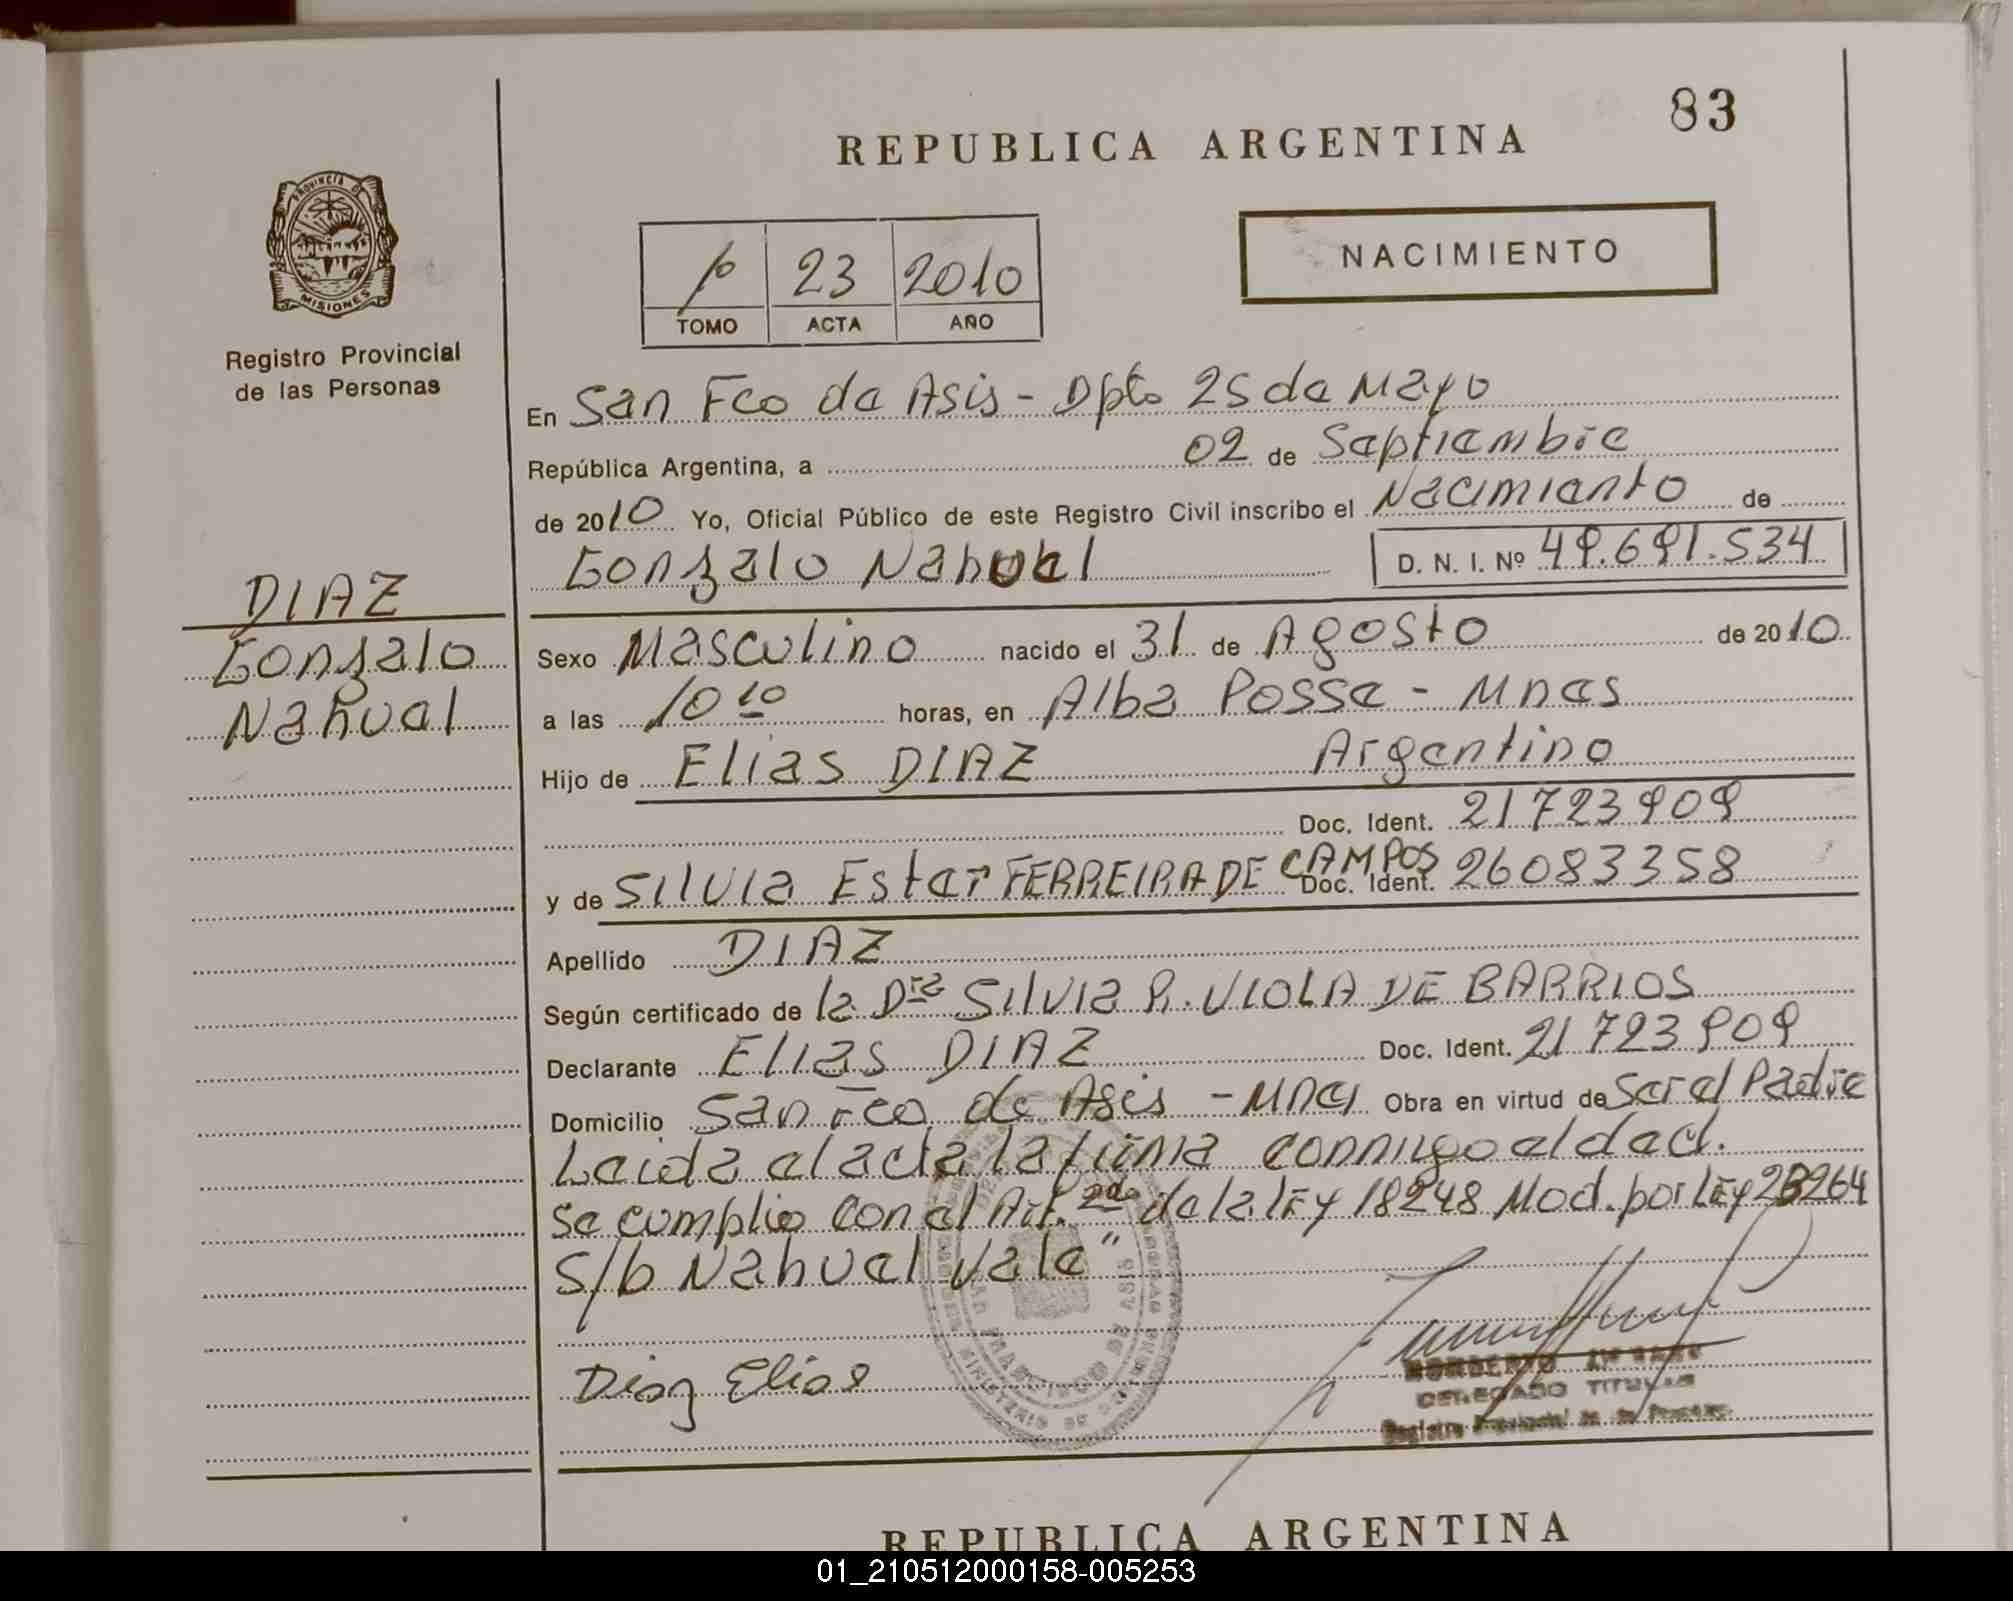 83
REPUBLICA ARGENTINA
NACIMIENTO
1º 23 2010
TOMO ACTA AÑO
PROVINCIA DE
MISIONES
Registro Provincial
de las Personas
DIAZ
Gonzalo
Nahuel
En San Fco de Asis - Dpto 25 de Mayo
República Argentina, a 02 de Septiembre
de 2010 Yo, Oficial Público de este Registro Civil inscribo el Nacimiento de
Gonzalo Nahuel D. N. I. Nº 49.691.534
Sexo Masculino nacido el 31 de Agosto de 2010
a las 10 10 horas, en Alba Posse - Mnes
Hijo de Elias DIAZ Argentino
Doc. Ident. 21723909
y de Silvia Ester FERREIRA DE CAMPOS Doc. Ident. 26083358
Apellido DIAZ
Según certificado de la Dra Silvia R. VIOLA DE BARRIOS
Declarante Elias DIAZ Doc. Ident. 21723909
Domicilio San Fco de Asis - Mnes Obra en virtud de Ser el Padre
Leida el acta la firma conmigo el decl.
Se cumplio con el Art. 2do de la ley 18248 Mod. por Ley 23264
S/b Nahuel Vale"
Diaz Elias
NORBERTO
DELEGADO TITULAR
Registro Provincial de las Personas
SAN FRANCISCO DE ASIS
REPUBLICA ARGENTINA
01_210512000158-005253